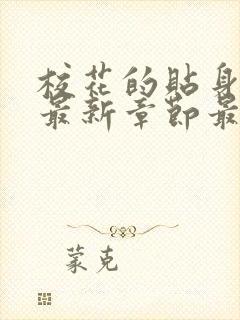 校花的贴身
最新章节最
蒙克